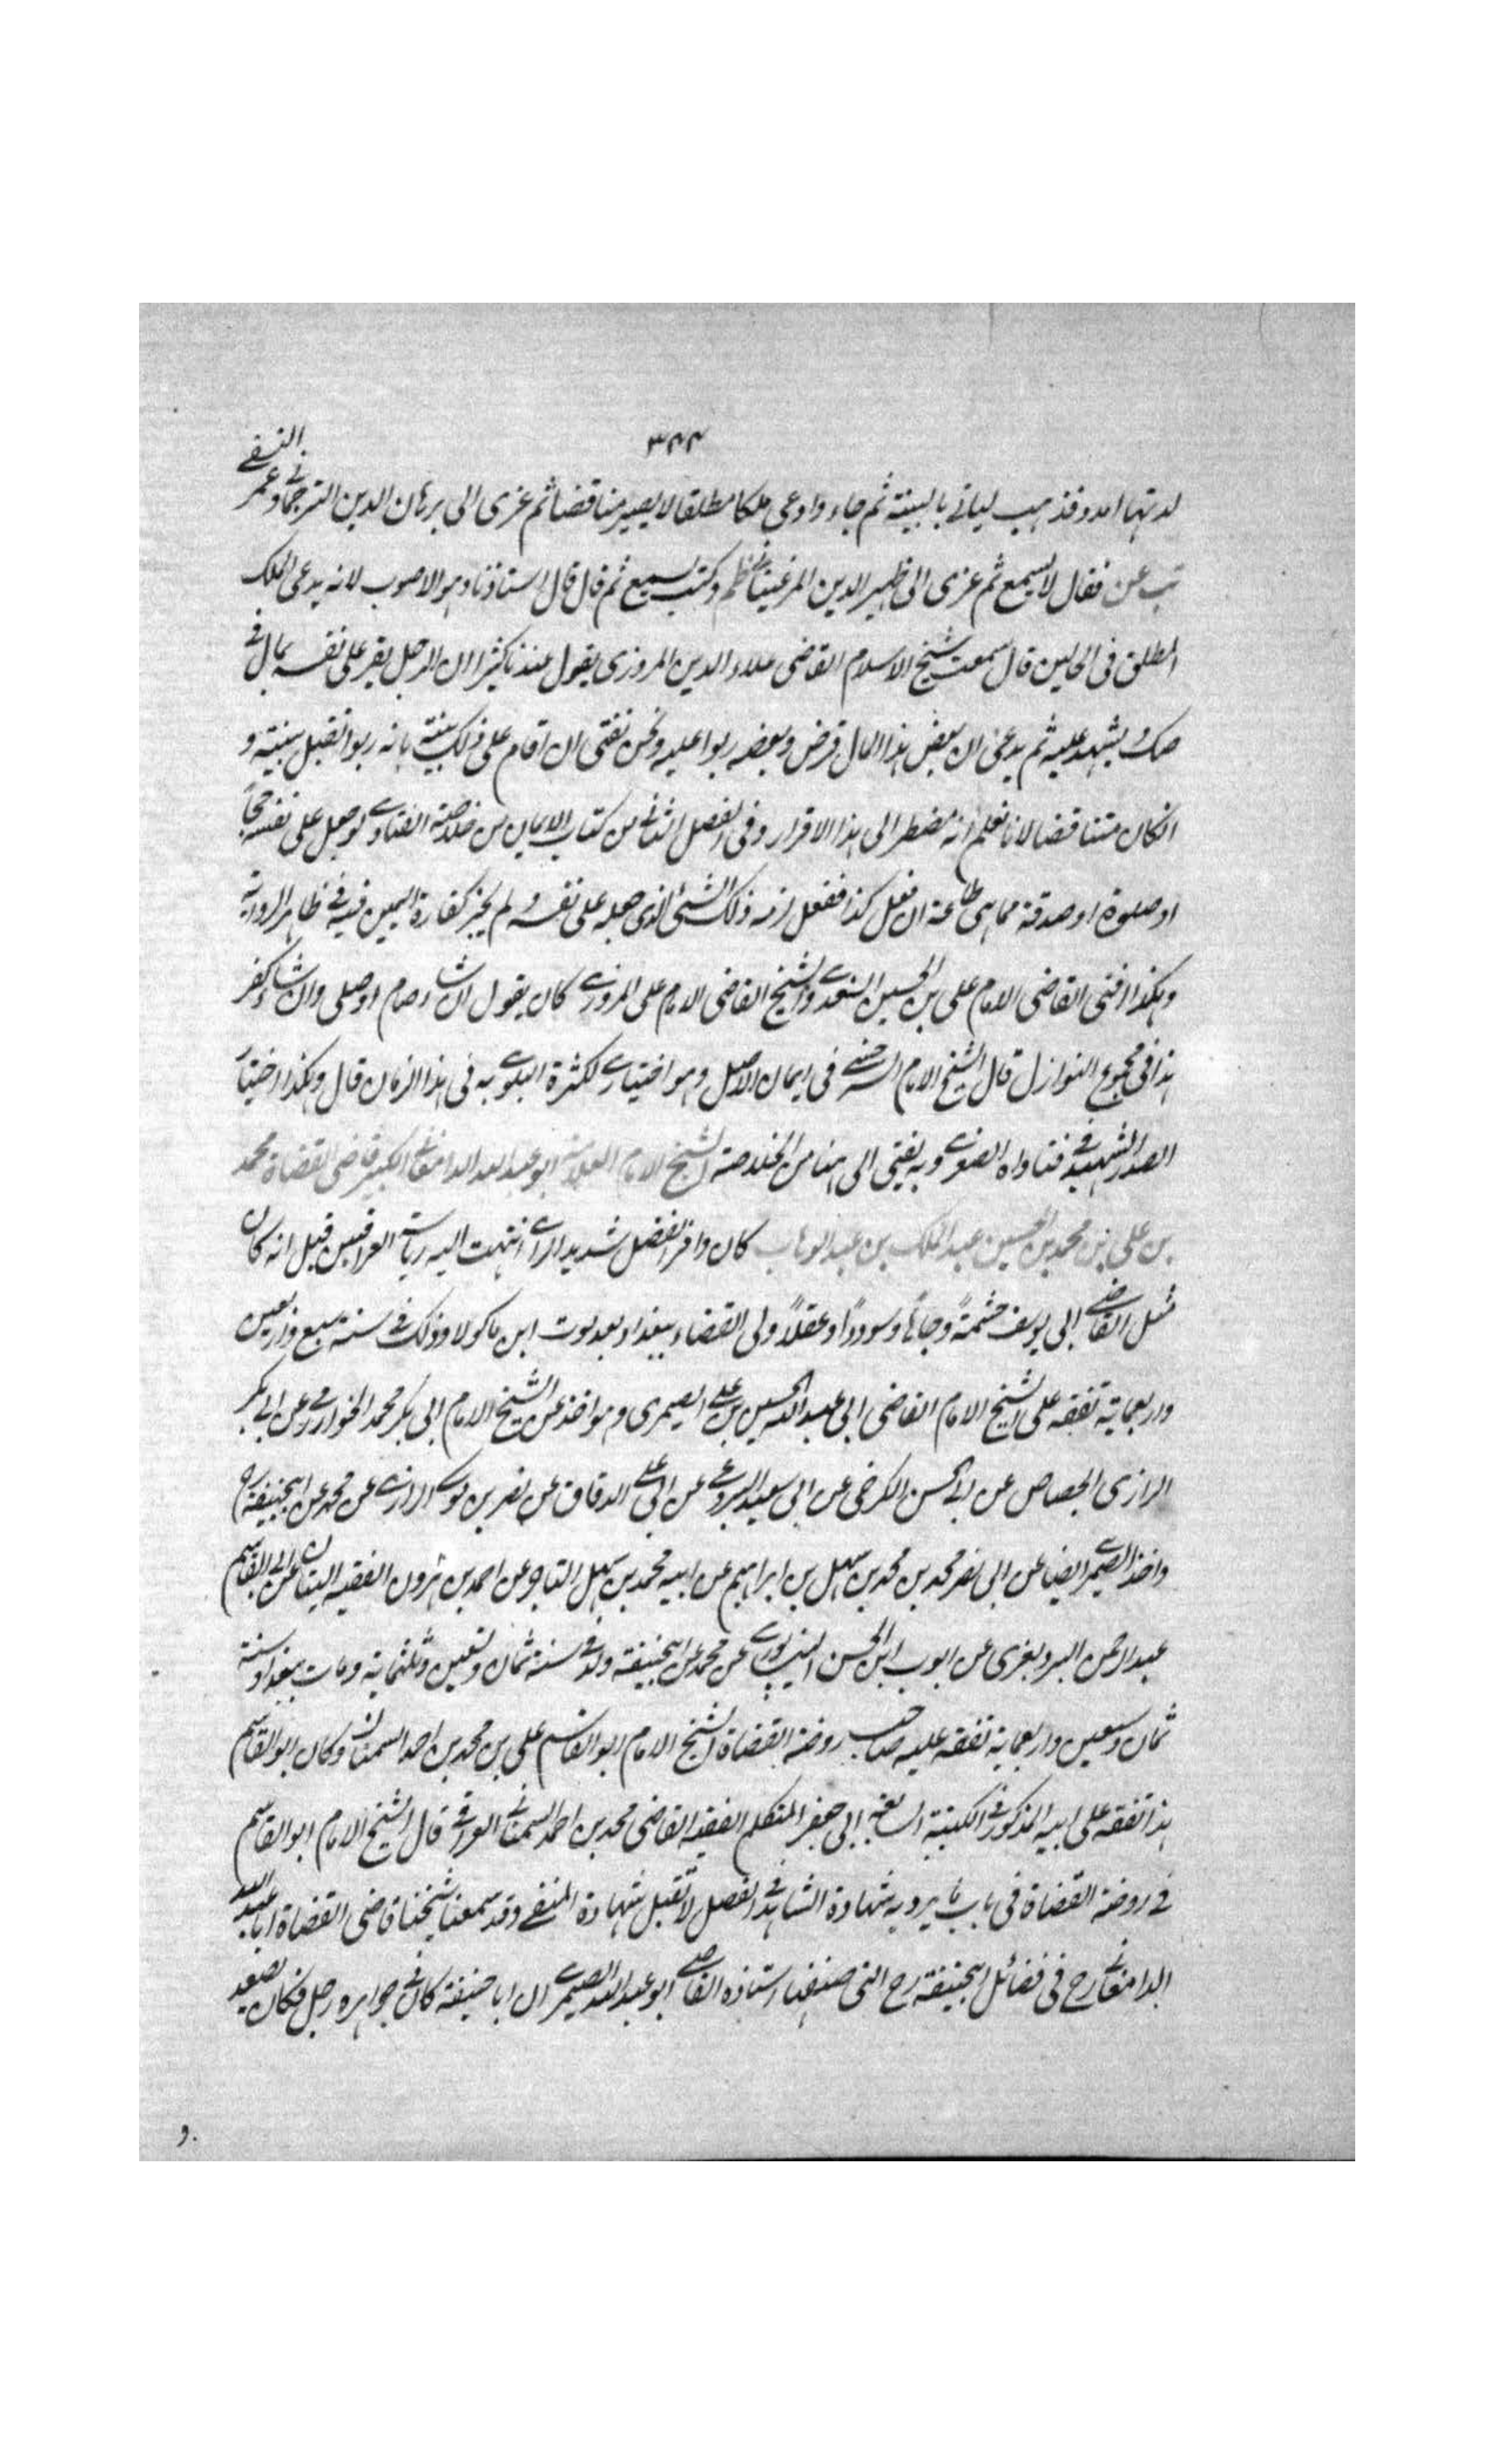 ٣٤٤
لدتهما امد وقد ذهب لياتي بالبينة ثم جاء وادعى ملكا مطلقا لا يصير مناقضا ثم عزى الى برهان الدين الترجماني وعمر النسفي
فقال لا يسمع ثم عزى الى ظهير الدين المرغيناني وكتب يسمع ثم قال قال استاذنا وهو الاصوب لانه يدعى الملك
المطلق فى الحالين قال سمعت شيخ الاسلام القاضى علاء الدين المروزى يقول عندنا كثيرا ان الرجل يقر على نفسه بمال فى
صك ويشهد عليه ثم يدعى ان بعض هذا المال قرض وبعضه ربوا عليه ونحن نفتى ان اقام على ذلك بينة بانه ربوا تقبل بينته و
انكان متناقضا لانا نعلم انه مضطر الى هذا الاقرار وفى الفصل الثانى من كتاب الايمان من خلاصة الفتاوے لو جعل على نفسه حجا
او صلوة او صدقة مما هى طاعة ان فعل كذا ففعل لزمه ذلك الشئ الذى جعله على نفسه ولم يجز كفارة اليمين فيه فى ظاهر الرواية
وهكذا افتى القاضى الامام على بن الحسين السغدے والشيخ القاضى الامام على المروزے كان يقول ان شاء صام او صلى وان شاء كفر
هذا فى مجموع النوازل قال الشيخ الامام السرخسے فى ايمان الاصل وهو اختيارے لكثرة البلوے به فى هذا الزمان قال وهكذا اختيار
الصدر الشهيد فى فتاواه الصغرے وبه يفتى الى هنا من الخلاصة الشيخ الامام العلامة ابو عبد الله الدامغانى الكبير قاضى القضاة محمد
بن على بن محمد بن الحسين عبد الملك بن عبد الوهاب كان وافر الفضل شديد الراے انتهت اليه رياسة العراقيين قيل انه كان
مثل القاضے ابى يوسف حشمة وجاها وسوددا وعقلا ولى القضاء ببغداد بعد موت ابن ماكولا وذلك فى سنة سبع واربعين
واربعماية تفقه على الشيخ الامام القاضى ابى عبد الله الحسين بن على الصيمرى وهو اخذ عن الشيخ الامام ابى بكر محمد الخوارزمے وعن ابى بكر
الرازى الجصاص عن ابى الحسن الكرخى عن ابى سعيد البردعے عن ابى على الدقاق عن نصر بن موسے الرازے عن محمد عن ابيحنيفة رح
واخذ الصيمرے ايضا عن ابى نصر محمد بن محمد بن سهل بن ابراهيم عن ابيه محمد بن سهل التاجر عن احمد بن هرون الفقيه عن ابى القاسم
عبد الرحمن عن ايوب ابن الحسن النيسابورے عن محمد عن ابيحنيفة ولد فى سنة ثمان وتسعين وثلثماية ومات ببغداد سنة
ثمان وسبعين واربعماية تفقه عليه صاحب روضة القضاة الشيخ الامام ابو القاسم على بن محمد بن احمد السمنانى وكان ابو القاسم
هذا تفقه على ابيه المذكور فى الكتيبة السابعة ابى جعفر المتكلم الفقيه القاضى محمد بن احمد السمنانى العراقے قال الشيخ الامام ابو القاسم
فى روضة القضاة فى باب ما يرد به شهادة الشاهد فى الفصل لا تقبل شهادة وقد سمعنا شيخنا قاضى القضاة ابا عبد الله
الدامغانى رح فى فضائل ابيحنيفة رح التى صنفها استاذه القاضے ابو عبد الله الصيمرے ان ابا حنيفة كان فى جواره رجل فكان يصعد
و